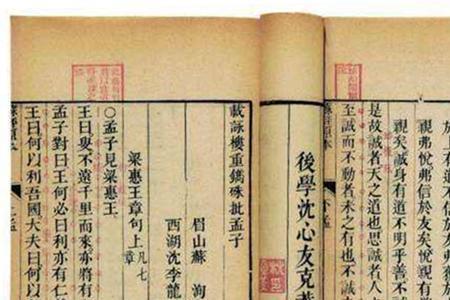 於上有道不信於友弗獲
親弗悅弗信於友矣悅親有
親矣誠身有道不明乎善不
是故誠者天之道也思誠者人
至誠而不動者未之有也不誠
下孟
後學沈心友克
載詠樓重鐫硃批孟子
眉山蘇洵
西湖沈李龍
梁惠王章句上凡七章
○孟子見梁惠王
王曰叟不遠千里而來亦將有
孟子對曰王何必曰利亦有仁
王曰何以利吾國大夫曰何
上孟